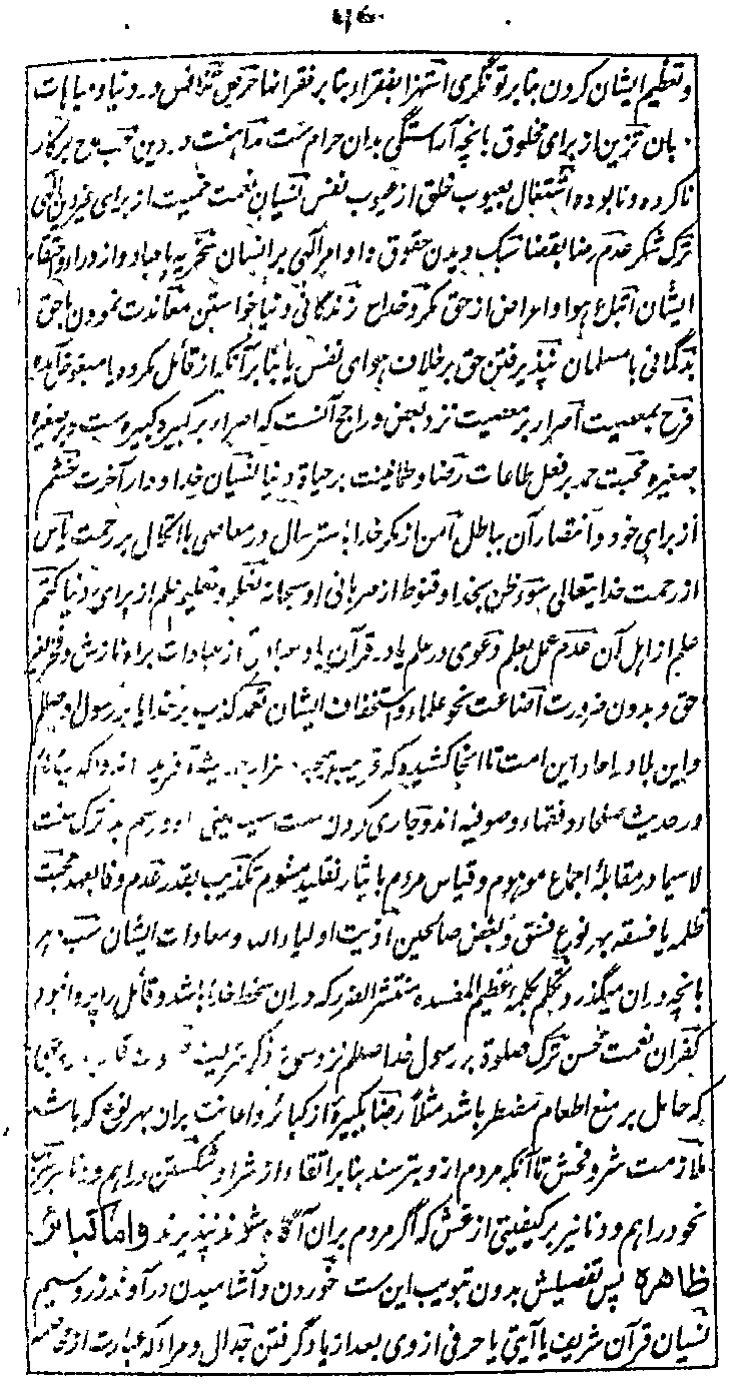 وتعظیم ایشان کردن بنابر تونگری استهزا بفقرا و بنابر فقر انها حرص تنافس در دنیا و مباهات
بان تزین از برای مخلوق بانچه آراستگی بدان حرام ست مداهنت در دین حب مدح بر کار
ناکرده و نابوده اشتغال بعیوب خلق از عیوب نفس نسیان نعمت حمیت از برای غیر دین الٰهی
ترک شکر عدم رضا بقضا سبک دیدن حقوق خدا و اوامر الٰهی بر انسان سخریه بعباد و ازدرا و احتقار
ایشان اتباع هوا و اعراض از حق مکر و خداع زندگانی دنیا خواستن معاندت نمودن با حق
بدگمانی با مسلمان نپذیرفتن حق بر خلاف هوای نفس یا بنابر آنکه از قائل مکروه یا مبغوض آمده
فرح بمعصیت اصرار بر معصیت نزد بعض و راجح آنست که اصرار بر کبیره کبیره ست و بر صغیره
صغیره محبت حمد بر فعل طاعات رضا و طمانینت بر حیاة دنیا نسیان خدا و دار آخرت خشم
از برای خود و انتصار آن بباطل امن از مکر خدا باسترسال در معاصی با اتکال بر رحمت یاس
از رحمت خدایتعالی سوء ظن بخدا و قنوط از مهربانی او سبحانه تعلم و تعلیم علم از برای دنیا کتم
علم از اهل آن عدم عمل بعلم دعوی در علم یا در قرآن یا در عبادتی از عبادات براه نازش و فخر بغیر
حق و بدون ضرورت اضاعت نحو علماء و استخفاف ایشان تعمد کذب بر خدا یا بر رسول او صلعم
و این بلا در احاد این امت تا انجا کشیده که قریب پنجه هزار حدیث آفریده اند و اکه
در حدیث صلحاء و فقهاء و صوفیه اند و جاری کردن سنت سیئه یعنی و رسم بد ترک سنت
لاسیما در مقابلهٔ اجماع موهوم و قیاس مردم با یثار تقلید مشوم تکذیب بقدر عدم وفا بعهد محبت
ظلمه یا فسقه بهر نوع فسق و بغض صالحین اذیت اولیاء الله و معادات ایشان سب دهر
بانچه دران میگذرد تکلم بکلمهٔ عظیم المفسده منتشر الضرر که دران سخط خدا باشد و قائل را پروا نبود
کفران نعمت محسن ترک صلوة بر رسول خدا صلعم نزد سمع ذکر شریف
که حامل بر منع اطعام مضطر باشد مثلاً رضا بکبیرهٔ از کبائر و اعانت بران بهر نوع که باشد
ملازمت شر و فحش تا آنکه مردم ازو بترسند بنابر اتقاء از شر او شکستن دراهم و دنانیر
نحو دراهم و دنانیر بر کیفیتی از غش که اگر مردم بران آگاه شوند نپذیرند واما کبائر
ظاهره پس تفصیلش بدون تبویب این ست خوردن و آشامیدن در آوند زر و سیم
نسیان قرآن شریف یا آیتی یا حرفی از وی بعد از یاد گرفتن جدال و مراء که عبارت از